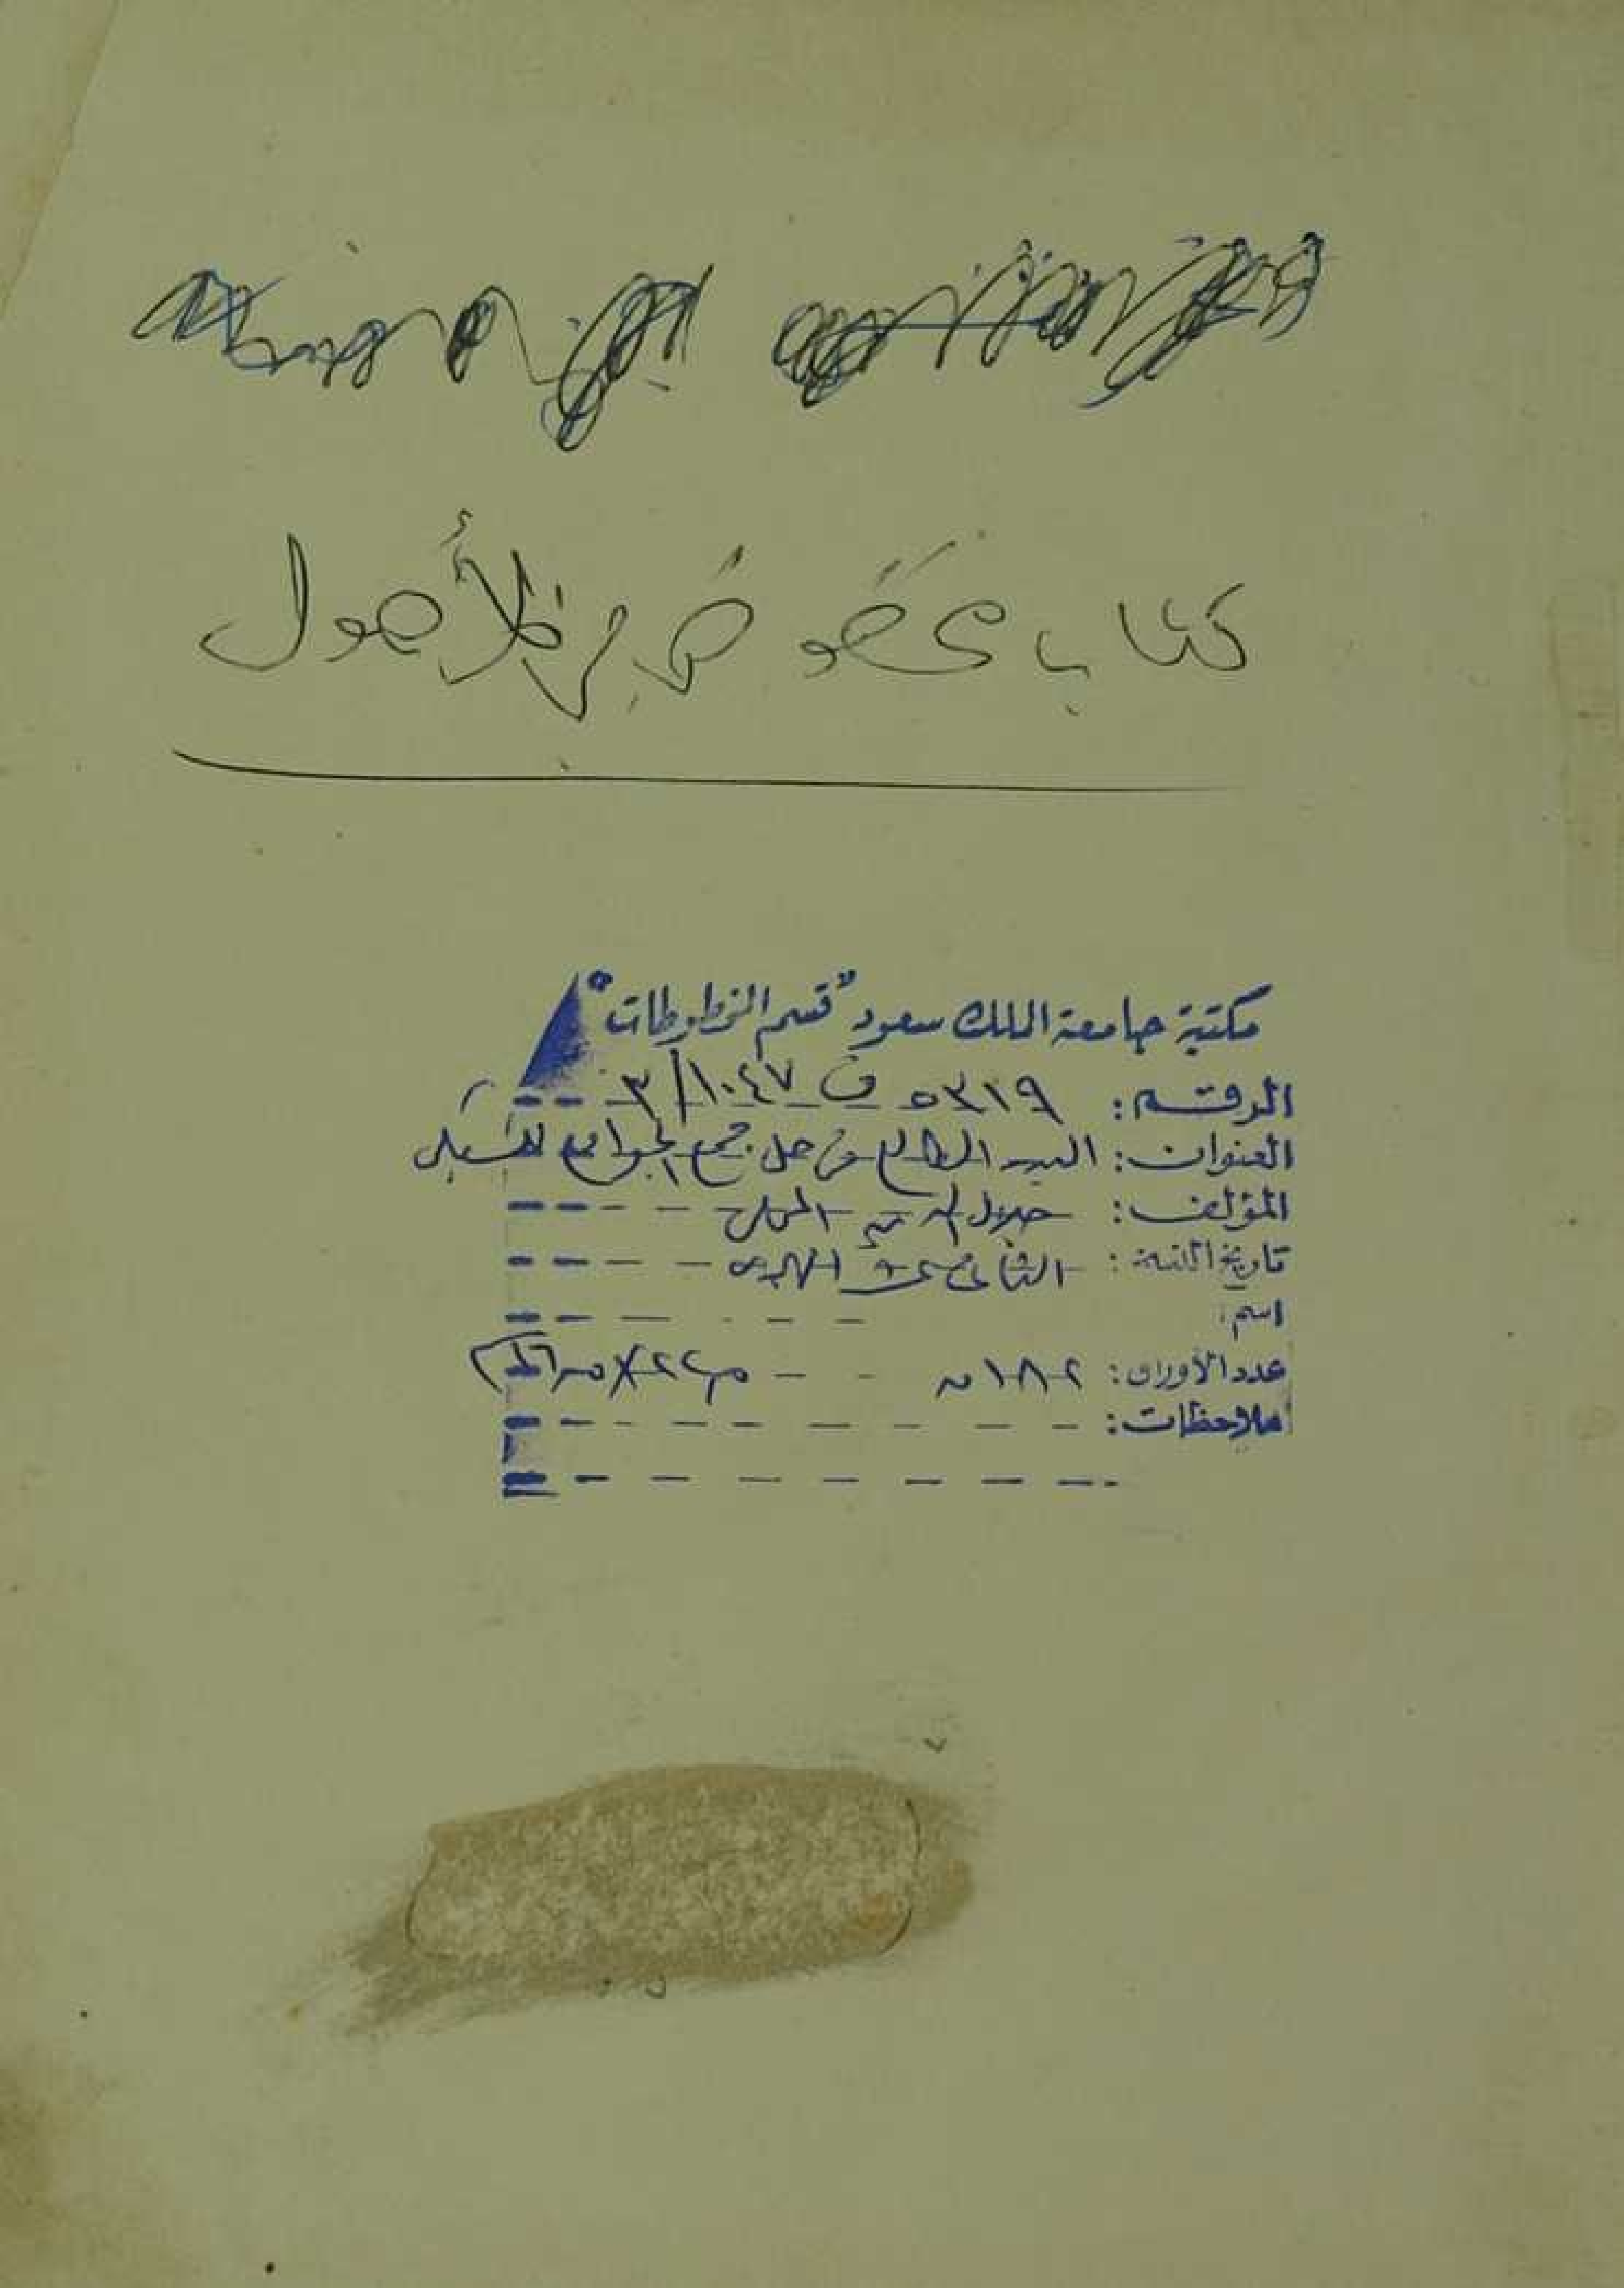 كتاب مخطوط في الأصول
مكتبة جامعة الملك سعود "قسم المخطوطات"
الرقم: ٥٣١٩ ف ١٠٤٧/٣
العنوان: البدر الطالع في حل جمع الجوامع للسبكي
المؤلف: جلال الدين المحلي
تاريخ النسخ: الثاني عشر الهجري
اسم:
عدد الأوراق: ١٨٢
ملاحظات: